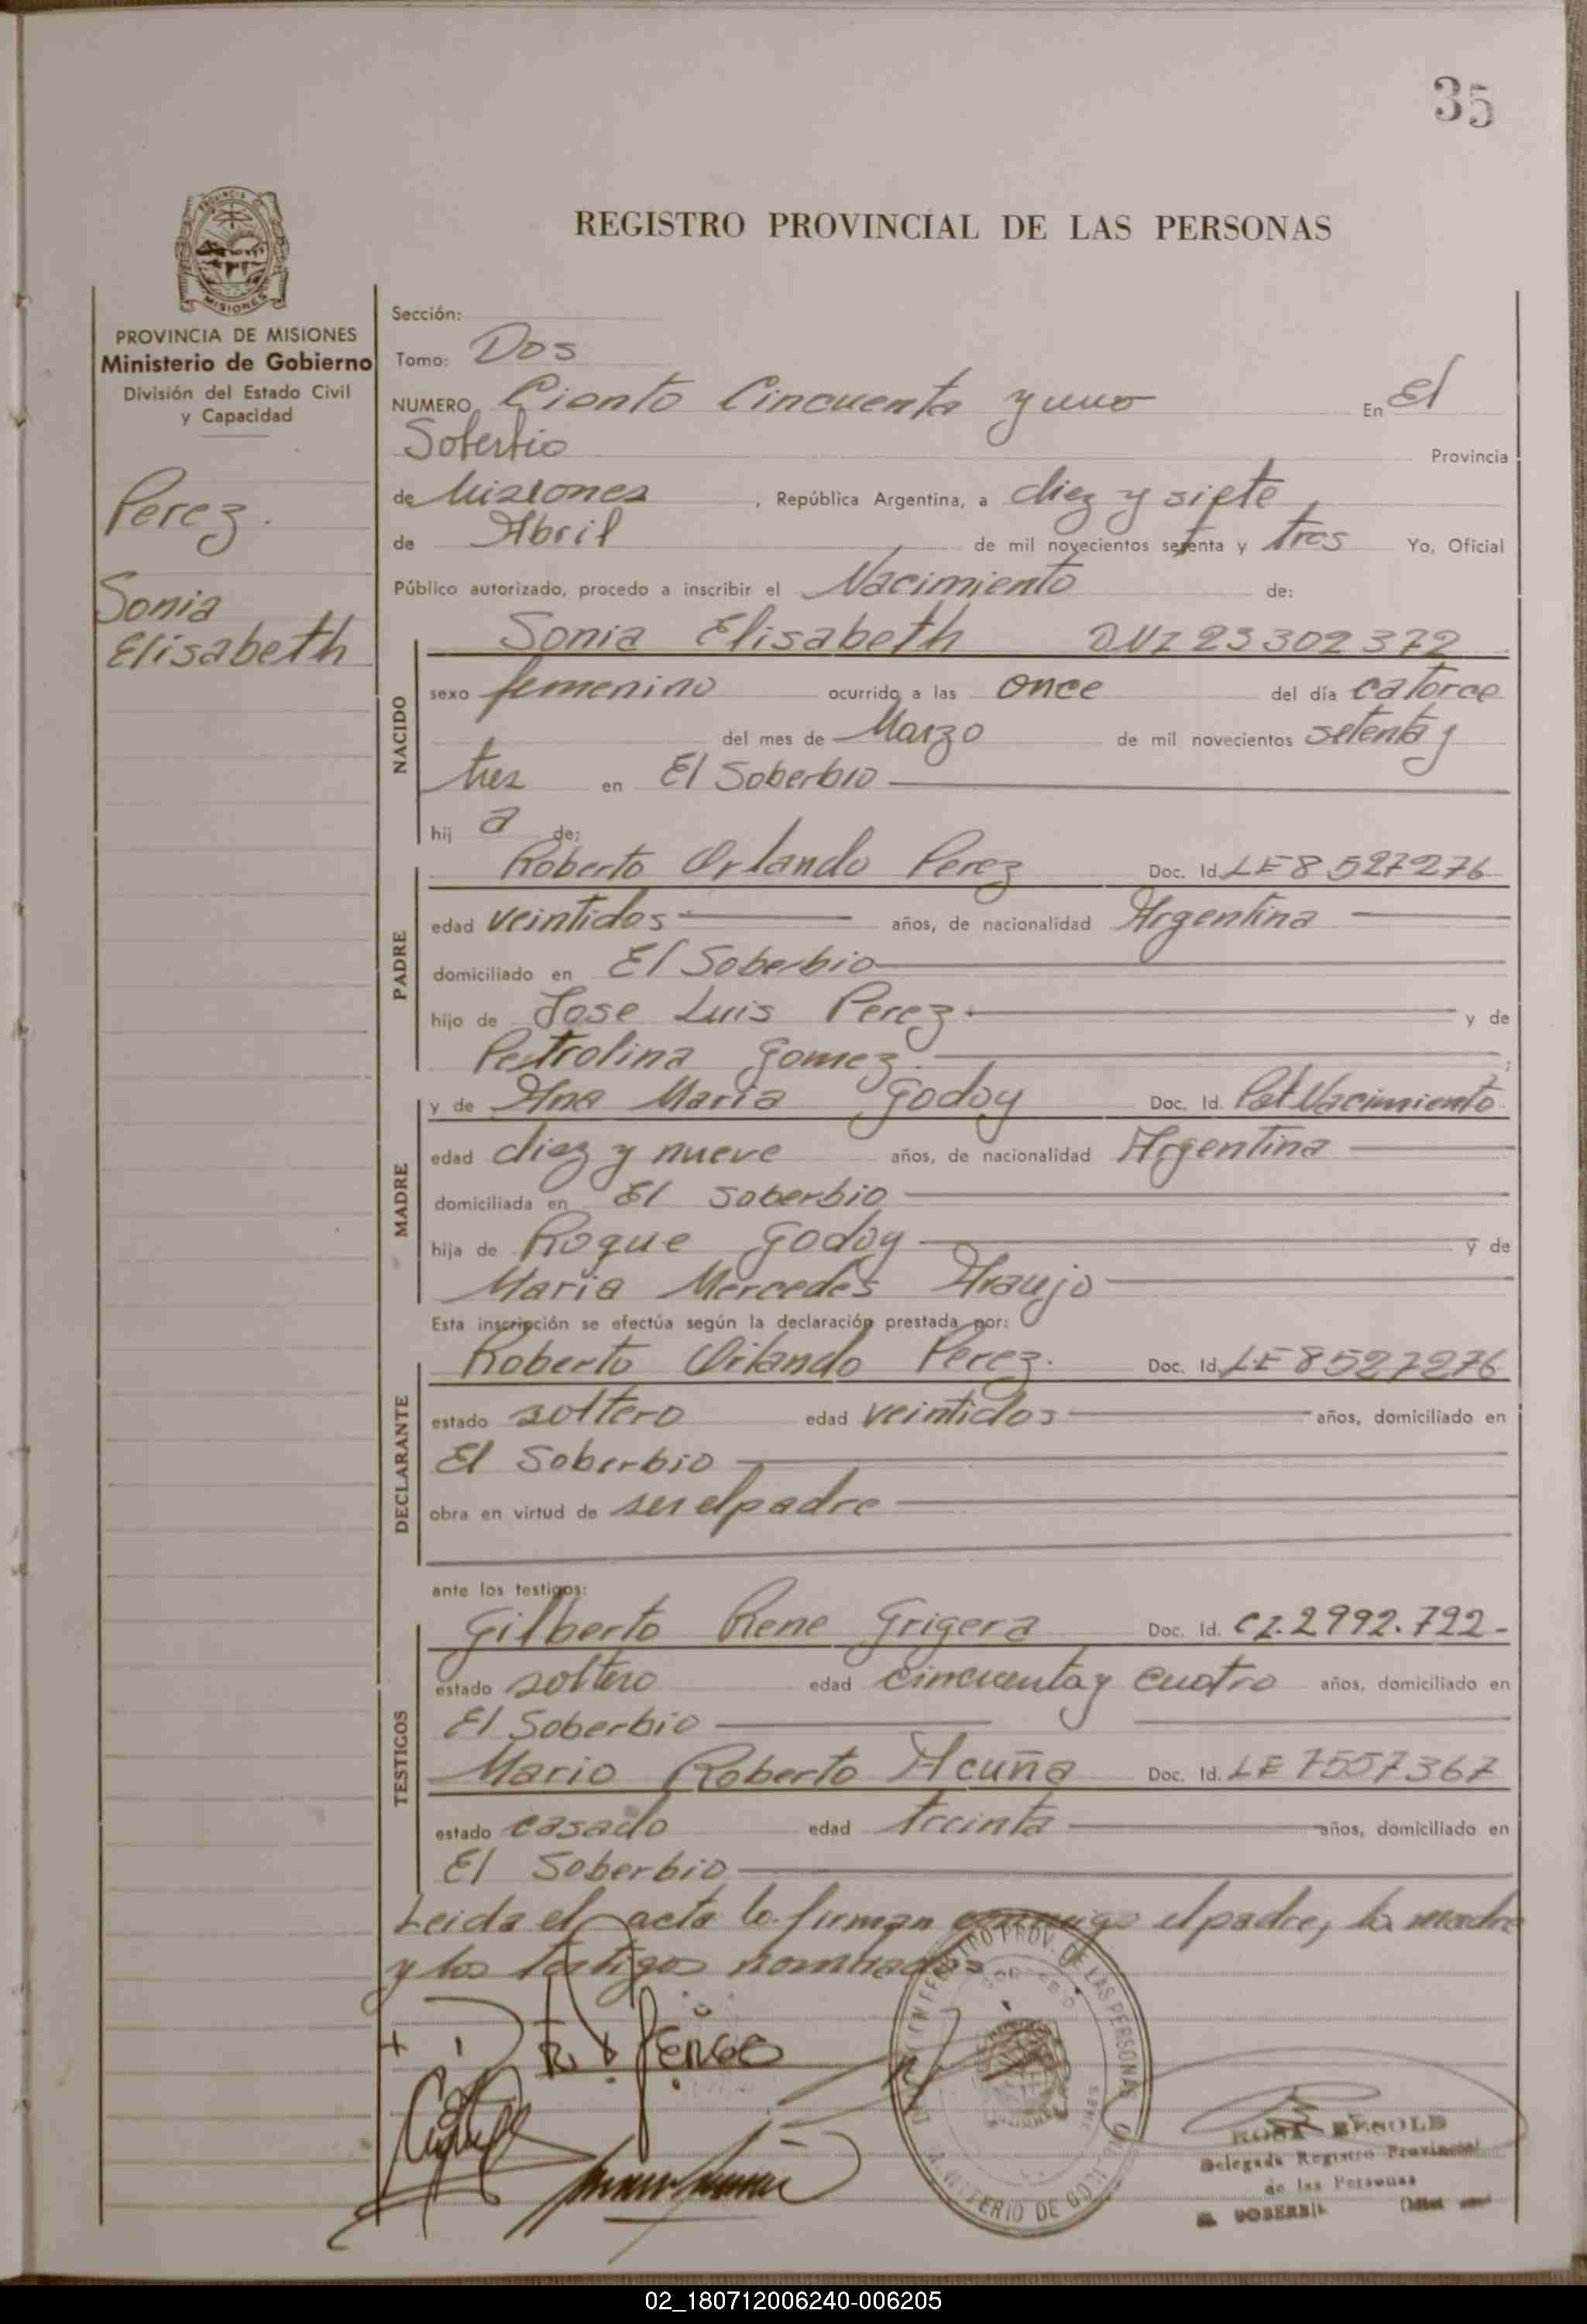 35
PROVINCIA DE MISIONES
Ministerio de Gobierno
División del Estado Civil
y Capacidad
Perez.
Sonia
Elisabeth
REGISTRO PROVINCIAL DE LAS PERSONAS
Sección:
Tomo: Dos
NUMERO Ciento Cincuenta y uno En El
Soberbio Provincia
de Misiones , República Argentina, a diez y siete
de Abril de mil novecientos setenta y tres Yo, Oficial
Público autorizado, procedo a inscribir el Nacimiento de:
NACIDO
Sonia Elisabeth DNI 23302372
sexo femenino ocurrido a las once del día catorce
del mes de Marzo de mil novecientos setenta y
tres en El Soberbio
hij a de:
PADRE
Roberto Orlando Perez Doc. Id. LE 8527276
edad veintidos años, de nacionalidad Argentina
domiciliado en El Soberbio
hijo de Jose Luis Perez. y de
Petrolina Gomez.
MADRE
y de Ana Maria Godoy Doc. Id. Nacimiento
edad diez y nueve años, de nacionalidad Argentina
domiciliada en El Soberbio
hija de Roque Godoy y de
Maria Mercedes Araujo
Esta inscripción se efectúa según la declaración prestada por:
DECLARANTE
Roberto Orlando Perez. Doc. Id. LE 8527276
estado soltero edad veintidos años, domiciliado en
El Soberbio
obra en virtud de ser el padre
ante los testigos:
TESTIGOS
Gilberto Rene Grigera Doc. Id. CI.2992.722-
estado soltero edad cincuenta y cuatro años, domiciliado en
El Soberbio
Mario Roberto Acuña Doc. Id. LE 7557367
estado casado edad treinta años, domiciliado en
El Soberbio
Leida el acta la firman conmigo el padre, la madre
y los testigos nombrados
Delegada Registro Provincial
de las Personas
02_180712006240-006205